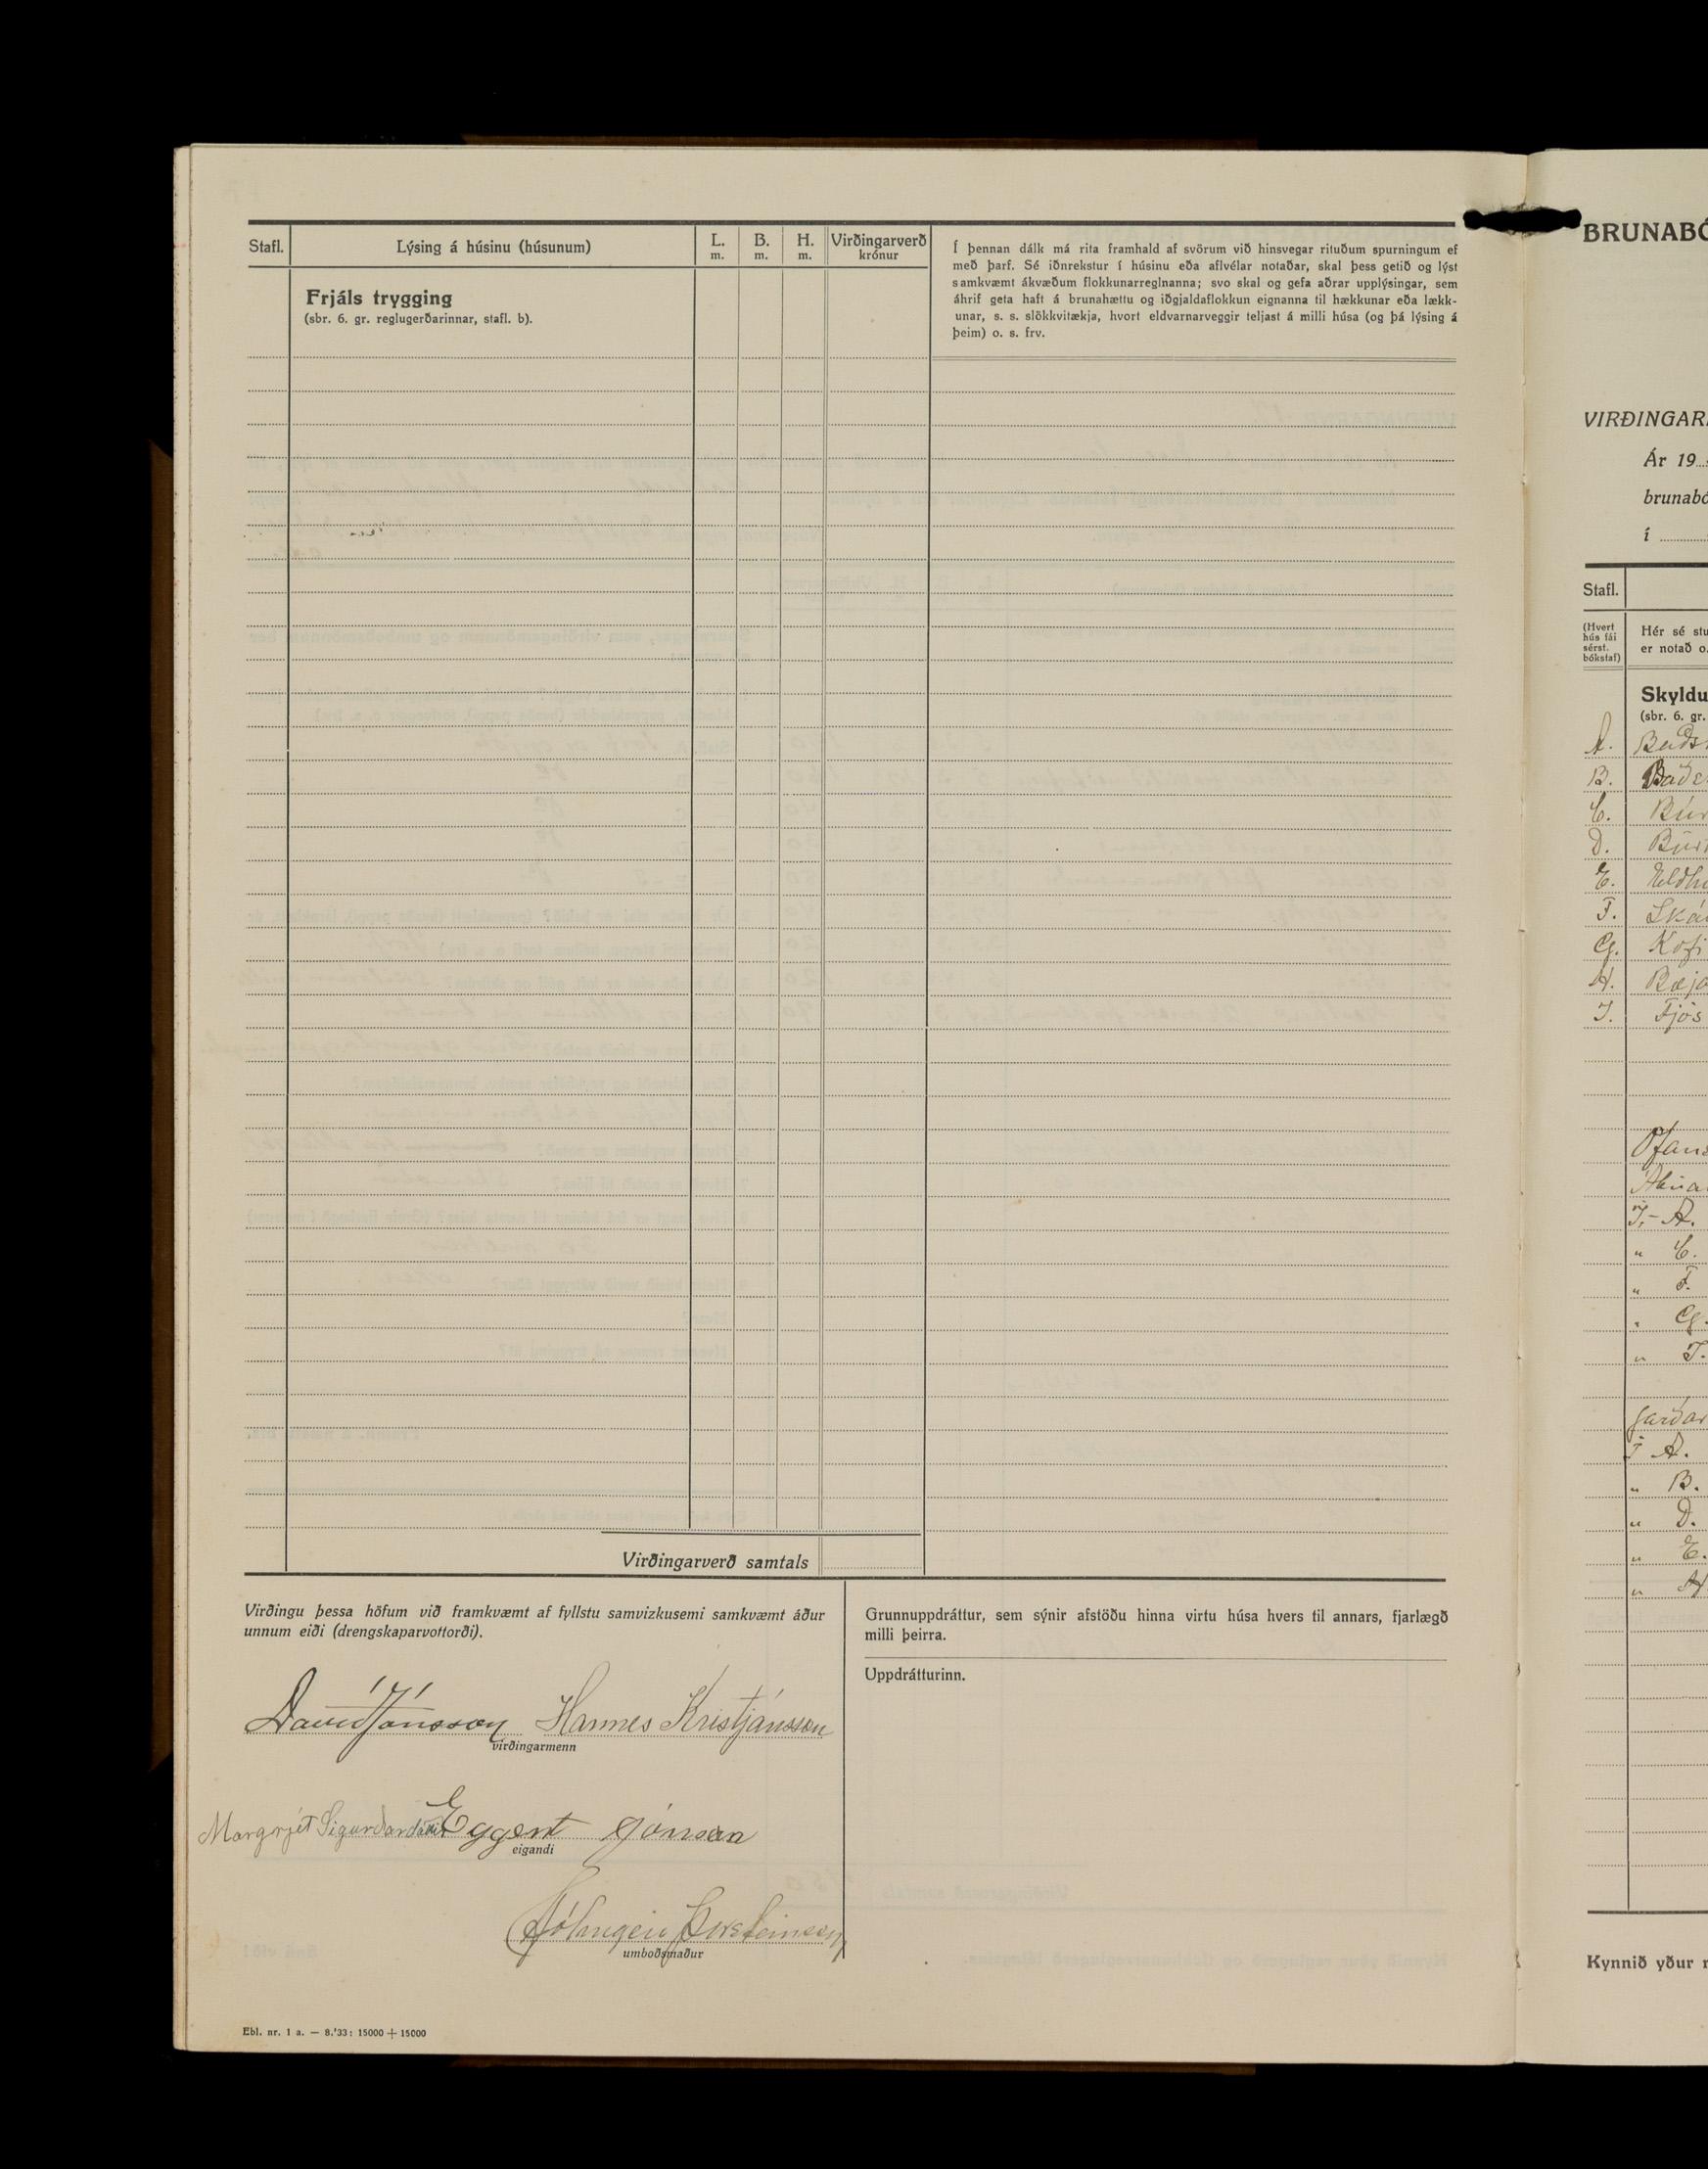 Stafl. Lýsing á húsinu (húsunum) L. m. B. m. H. m. Virðingarverð krónur
Frjáls trygging
(sbr. 6. gr. reglugerðarinnar, stafl. b).
Í þennan dálk má rita framhald af svörum við hinsvegar rituðum spurningum ef
með þarf. Sé iðnrekstur í húsinu eða aflvélar notaðar, skal þess getið og lýst
samkvæmt ákvæðum flokkunarreglnanna; svo skal og gefa aðrar upplýsingar, sem
áhrif geta haft á brunahættu og iðgjaldaflokkun eignanna til hækkunar eða lækk-
unar, s. s. slökkvitækja, hvort eldvarnarveggir teljast á milli húsa (og þá lýsing á
þeim) o. s. frv.
Virðingarverð samtals
Virðingu þessa höfum við framkvæmt af fyllstu samvizkusemi samkvæmt áður
unnum eiði (drengskaparvottorði).
Davíð Jónsson Hannes Kristjánsson
virðingarmenn
Margrjét Sigurðardóttir Eggert Jónsson
eigandi
Þorsteinsson
umboðsmaður
Grunnuppdráttur, sem sýnir afstöðu hinna virtu húsa hvers til annars, fjarlægð
milli þeirra.
Uppdrátturinn.
Ebl. nr. 1 a. — 8.'33: 15000 + 15000
BRUNABÓ
VIRÐINGAR
Ár 19
brunabó
í
Stafl.
(Hvert
hús fái
sérst.
bókstaf)
Hér sé stu
er notað o.
Skyldu
(sbr. 6. gr.
A. Baðs
B. Baðs
C. Búr
D. Búr
E. Eldhú
F. Ská
G. Kofi
H. Bæja
I. Fjós
Ofans
Í - A.
" C.
" F.
" G.
" I.
í A.
" B.
" D.
" E.
" H
Kynnið yður r